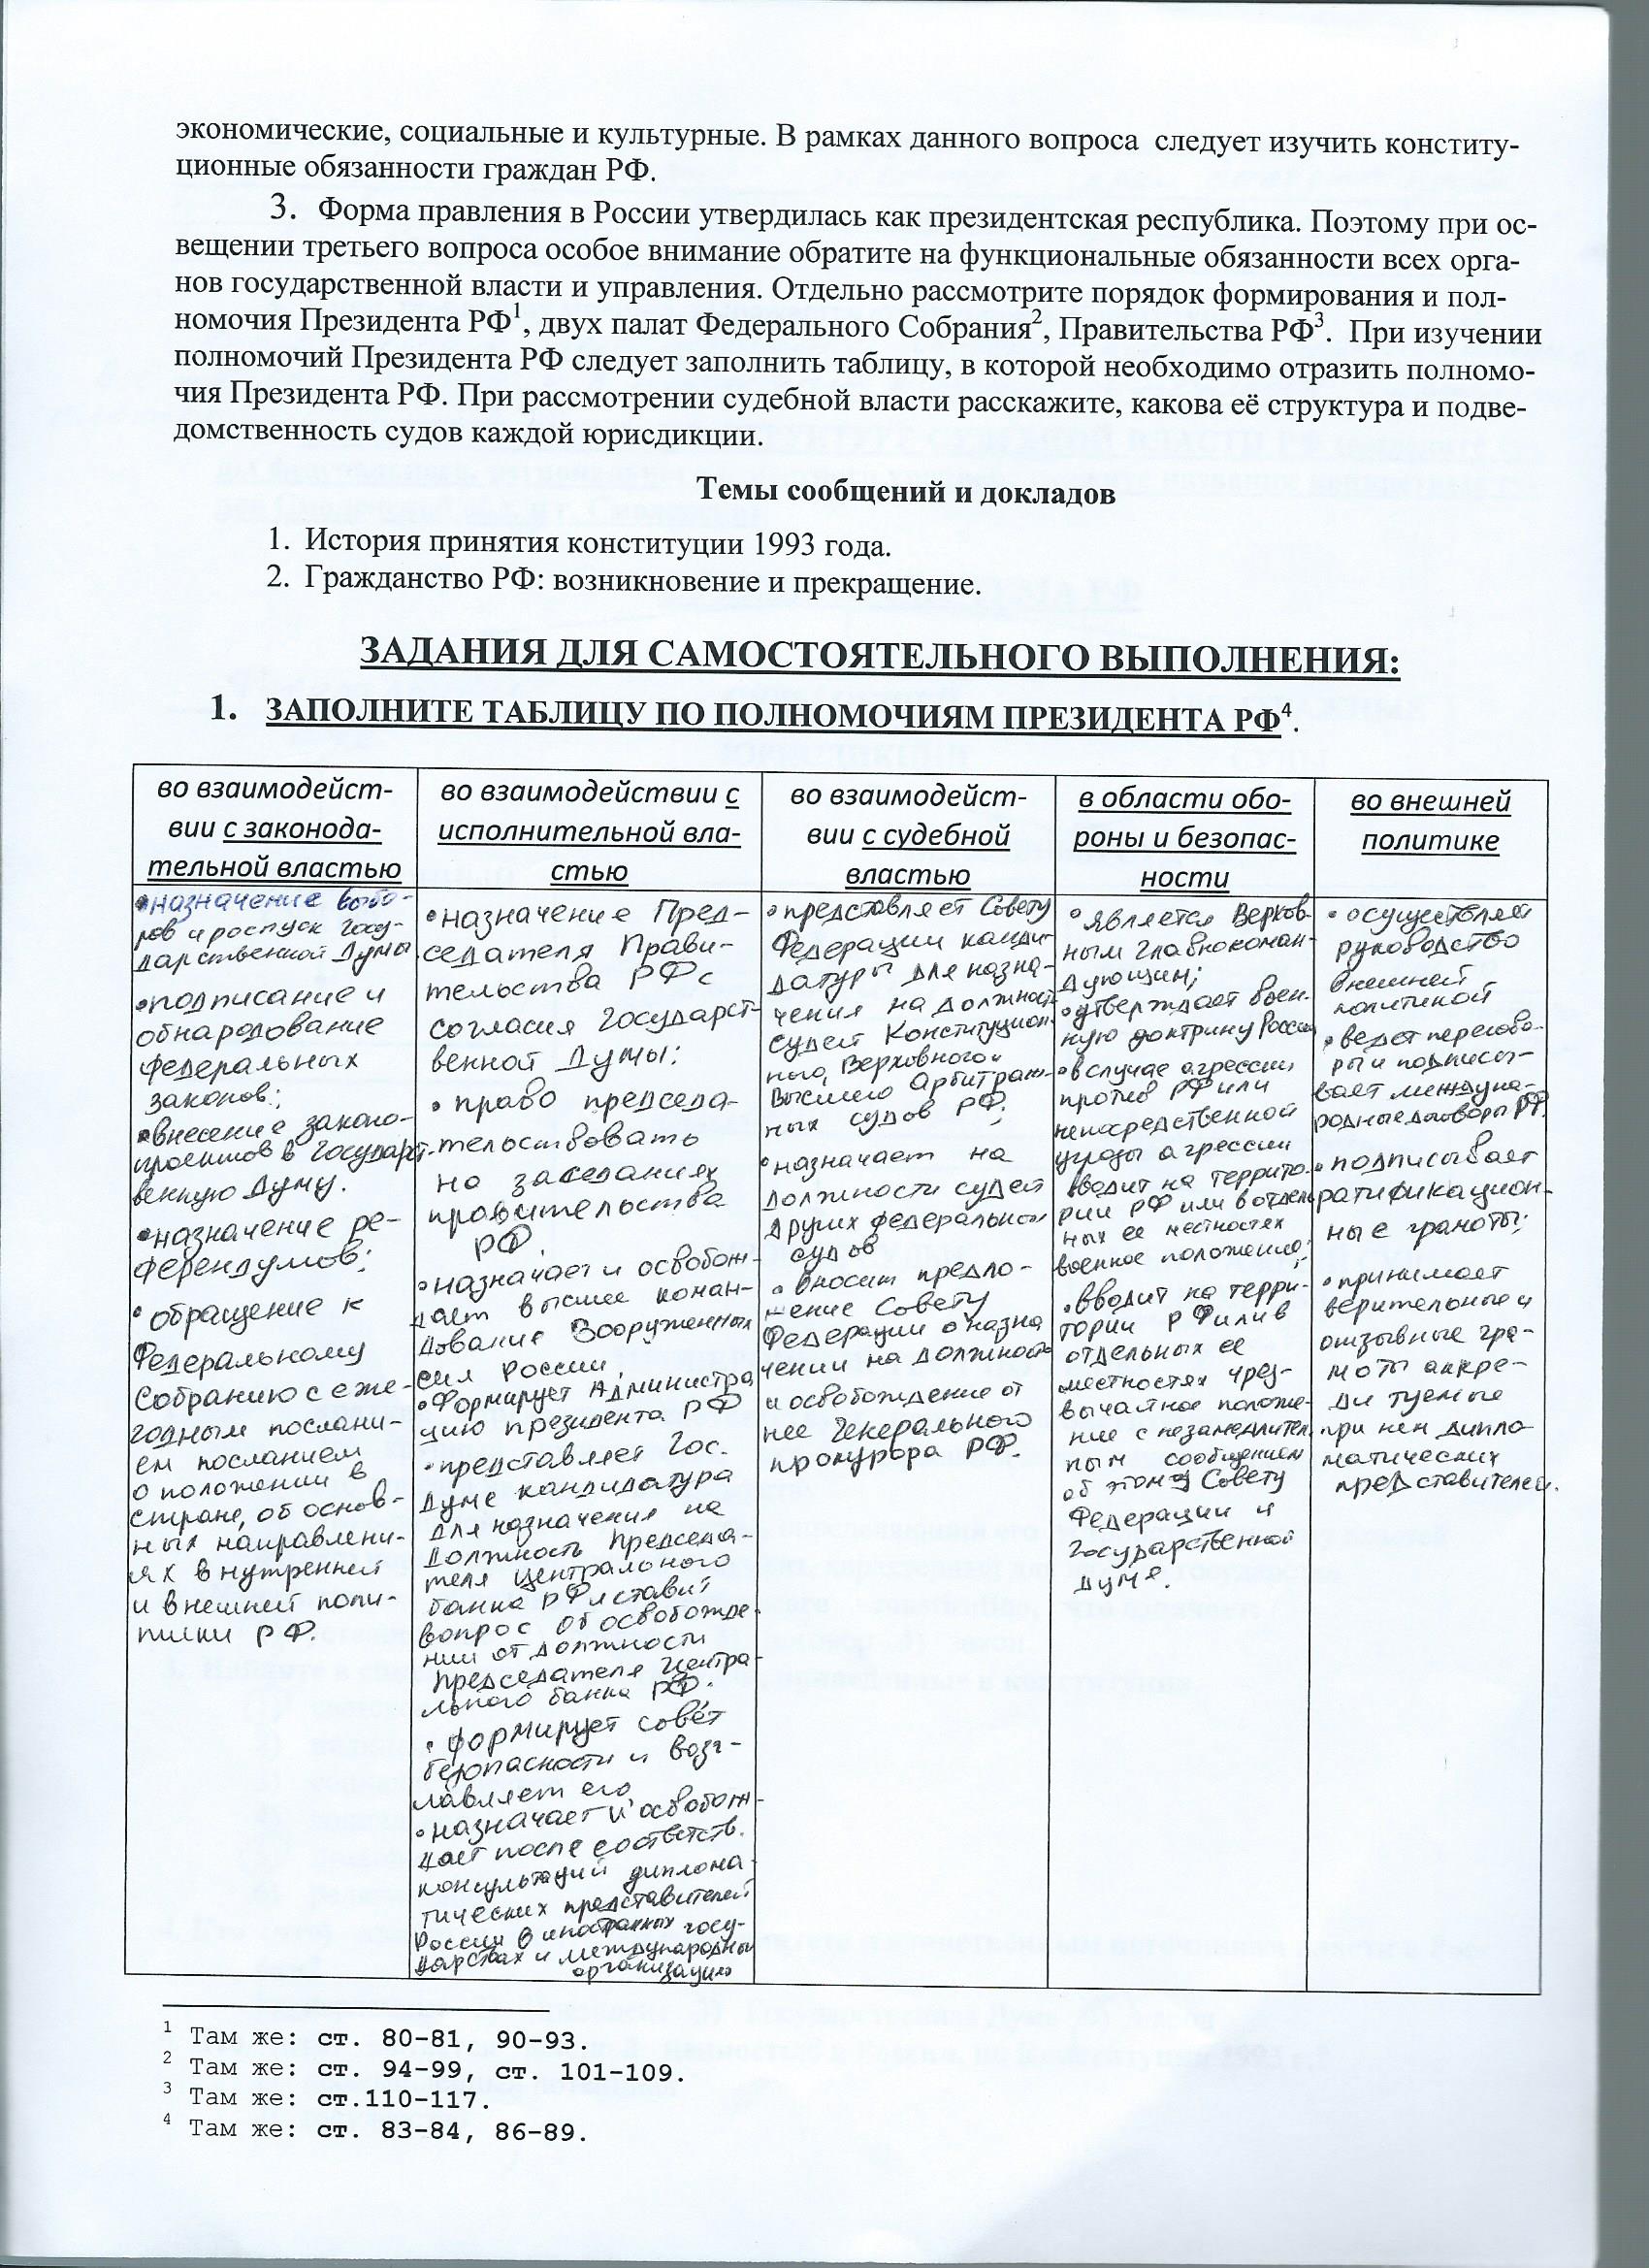 экономические, социальные и культурные. В рамках данного вопроса следует изучить конститу-
ционные обязанности граждан РФ.
3. Форма правления в России утвердилась как президентская республика. Поэтому при ос-
вещении третьего вопроса особое внимание обратите на функциональные обязанности всех орга-
нов государственной власти и управления. Отдельно рассмотрите порядок формирования и пол-
номочия Президента РФ1, двух палат Федерального Собрания2, Правительства РФ3. При изучении
полномочий Президента РФ следует заполнить таблицу, в которой необходимо отразить полномо-
чия Президента РФ. При рассмотрении судебной власти расскажите, какова её структура и подве-
домственность судов каждой юрисдикции.
Темы сообщений и докладов
1. История принятия конституции 1993 года.
2. Гражданство РФ: возникновение и прекращение.
ЗАДАНИЯ ДЛЯ САМОСТОЯТЕЛЬНОГО ВЫПОЛНЕНИЯ:
1. ЗАПОЛНИТЕ ТАБЛИЦУ ПО ПОЛНОМОЧИЯМ ПРЕЗИДЕНТА РФ4.
во взаимодейст-
вии с законода-
тельной властью
•назначение выбо-
ров и роспуск Госу-
дарственной Думы
•подписание и
обнародование
федеральных
законов;
•внесение законо-
проектов в Государст-
венную Думу.
•назначение ре-
ферендумов;
•обращение к
Федеральному
Собранию с еже-
годным послани-
ем посланием
о положении в
стране, об основ-
ных направлени-
ях внутренней
и внешней поли-
тики РФ.
во взаимодействии с
исполнительной вла-
стью
•назначение Пред-
седателя Прави-
тельства РФ с
согласия Государст-
венной Думы;
•право председа-
тельствовать
на заседаниях
правительства
РФ.
•назначает и освобож-
дает высшее коман-
дование Вооруженных
сил России;
•Формирует Администра
цию президента РФ
•представляет Гос.
Думе кандидатура
для назначения на
должность Председа-
теля Центрального
банка РФ и ставит
вопрос об освобожде-
нии от должности
Председателя Центра-
льного банка РФ.
•формирует совет
безопасности и возг-
лавляет его
•назначает и освобож-
дает после соответств.
консультаций диплома-
тических представителей
России в иностранных госу-
дарствах и международных
организациях
во взаимодейст-
вии с судебной
властью
•представляет Совету
Федерации канди-
датуры для назна-
чения на должност
судей Конституцион-
ного, Верховного и
Высшего Арбитраж-
ных судов РФ;
•назначает на
должности судей
других федеральных
судов
•вносит предло-
жение Совету
Федерации о назна
чении на должность
и освобождение от
нее Генерального
прокурора РФ.
в области обо-
роны и безопас-
ности
•является Верхов-
ным главнокоман-
дующим;
•утверждает воен-
ную доктрину России
•в случае агрессии
против РФ или
непосредственной
угрозы агрессии
вводит на террито-
рии РФ или в отдель
ных ее местностях
военное положение;
•Вводит на терри-
тории РФ или в
отдельных ее
местностях чрез-
вычайное положе-
ние с незамедлитель
ным сообщением
об этому Совету
Федерации и
Государственной
Думе.
во внешней
политике
•осуществляет
руководство
внешней
политикой
•ведет перегово-
ры и подписы-
вает междуна-
родные договоры РФ.
•подписывает
ратификацион-
ные грамоты;
•принимает
верительные и
отзывные гра-
моты аккре-
дитуемые
при нем дипло
матических
представителей.
1 Там же: ст. 80-81, 90-93.
2 Там же: ст. 94-99, ст. 101-109.
3 Там же: ст.110-117.
4 Там же: ст. 83-84, 86-89.